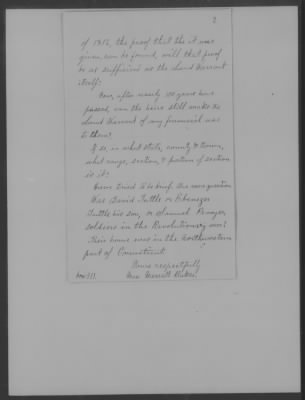 2
of 1812, the proof that the it was
given, can be found, will that proof
be as sufficient as the Land Warrant
itself?
Now, after nearly 100 years have
passed, can the heirs still make the
Land Warrant of any financial use
to them?
If so, in what state, county & town,
what range, section, & portion of section
is it?
Have tried to be brief. One more question
Was David Tuttle or Ebenezer
Tuttle his son, or Samuel
soldiers in the Revolutionary war?
Their home was in the northwestern
part of Connecticut
Yours respectfully
Box 511. Mrs. Merritt